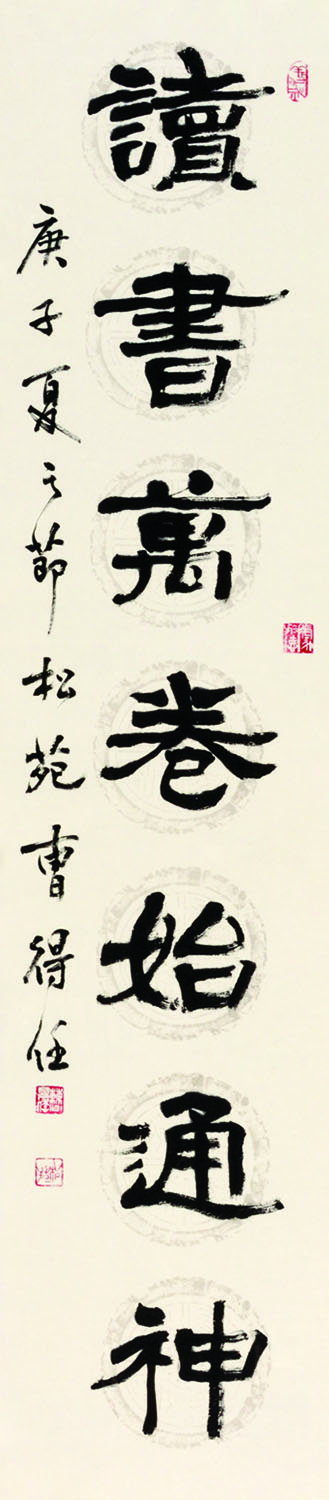 讀書萬卷始通神
庚子夏之節松苑曹得任